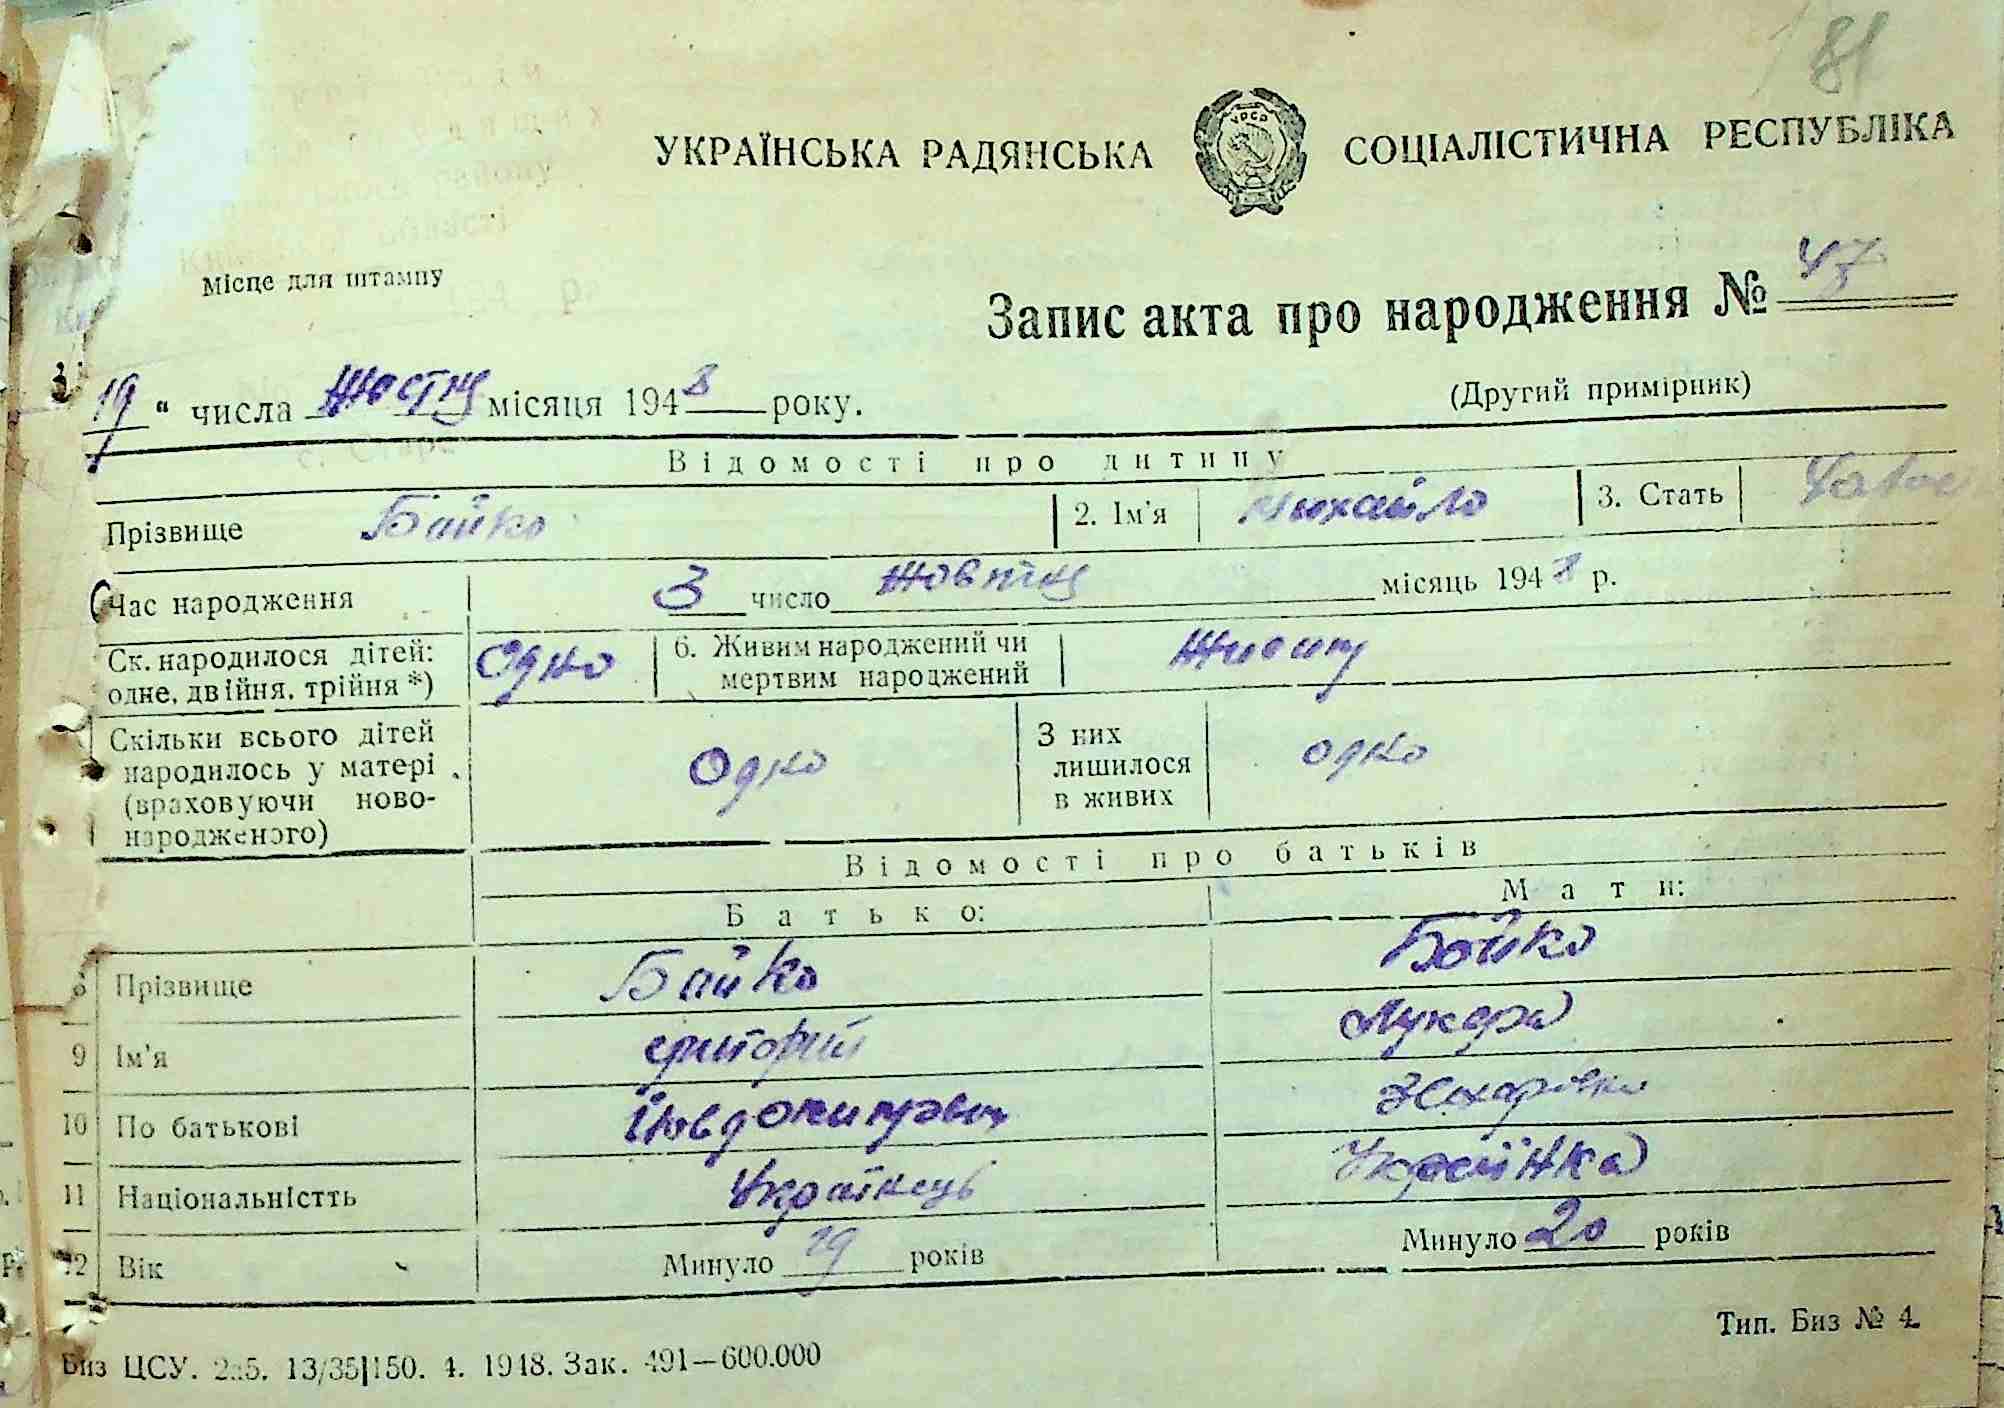 81
УКРАЇНСЬКА РАДЯНСЬКА СОЦІАЛІСТИЧНА РЕСПУБЛІКА
УРСР
району
області
Місце для штампу
Запис акта про народження № 47
19 " числа місяця 1948 року.
(Другий примірник)
Відомості про дитину
Прізвище Бойко 2. Ім'я Михайло 3. Стать
Час народження 3 число Жовтня місяць 1948 р.
Ск. народилося дітей: одне, двійня, трійня *) Одно 6. Живим народжений чи мертвим народжений Живим
Скільки всього дітей народилось у матері (враховуючи ново-народженого) Одно З них лишилося в живих одно
Відомості про батьків
Батько: Мати:
8 Прізвище Бойко Бойко
9 Ім'я григорий Лукера
10 По батькові Захаровна
11 Національністть Українець Українка
12 Вік Минуло 19 років Минуло 20 років
Биз ЦСУ. 2а5. 13/35|150. 4. 1948. Зак. 491—600.000
Тип. Биз № 4.